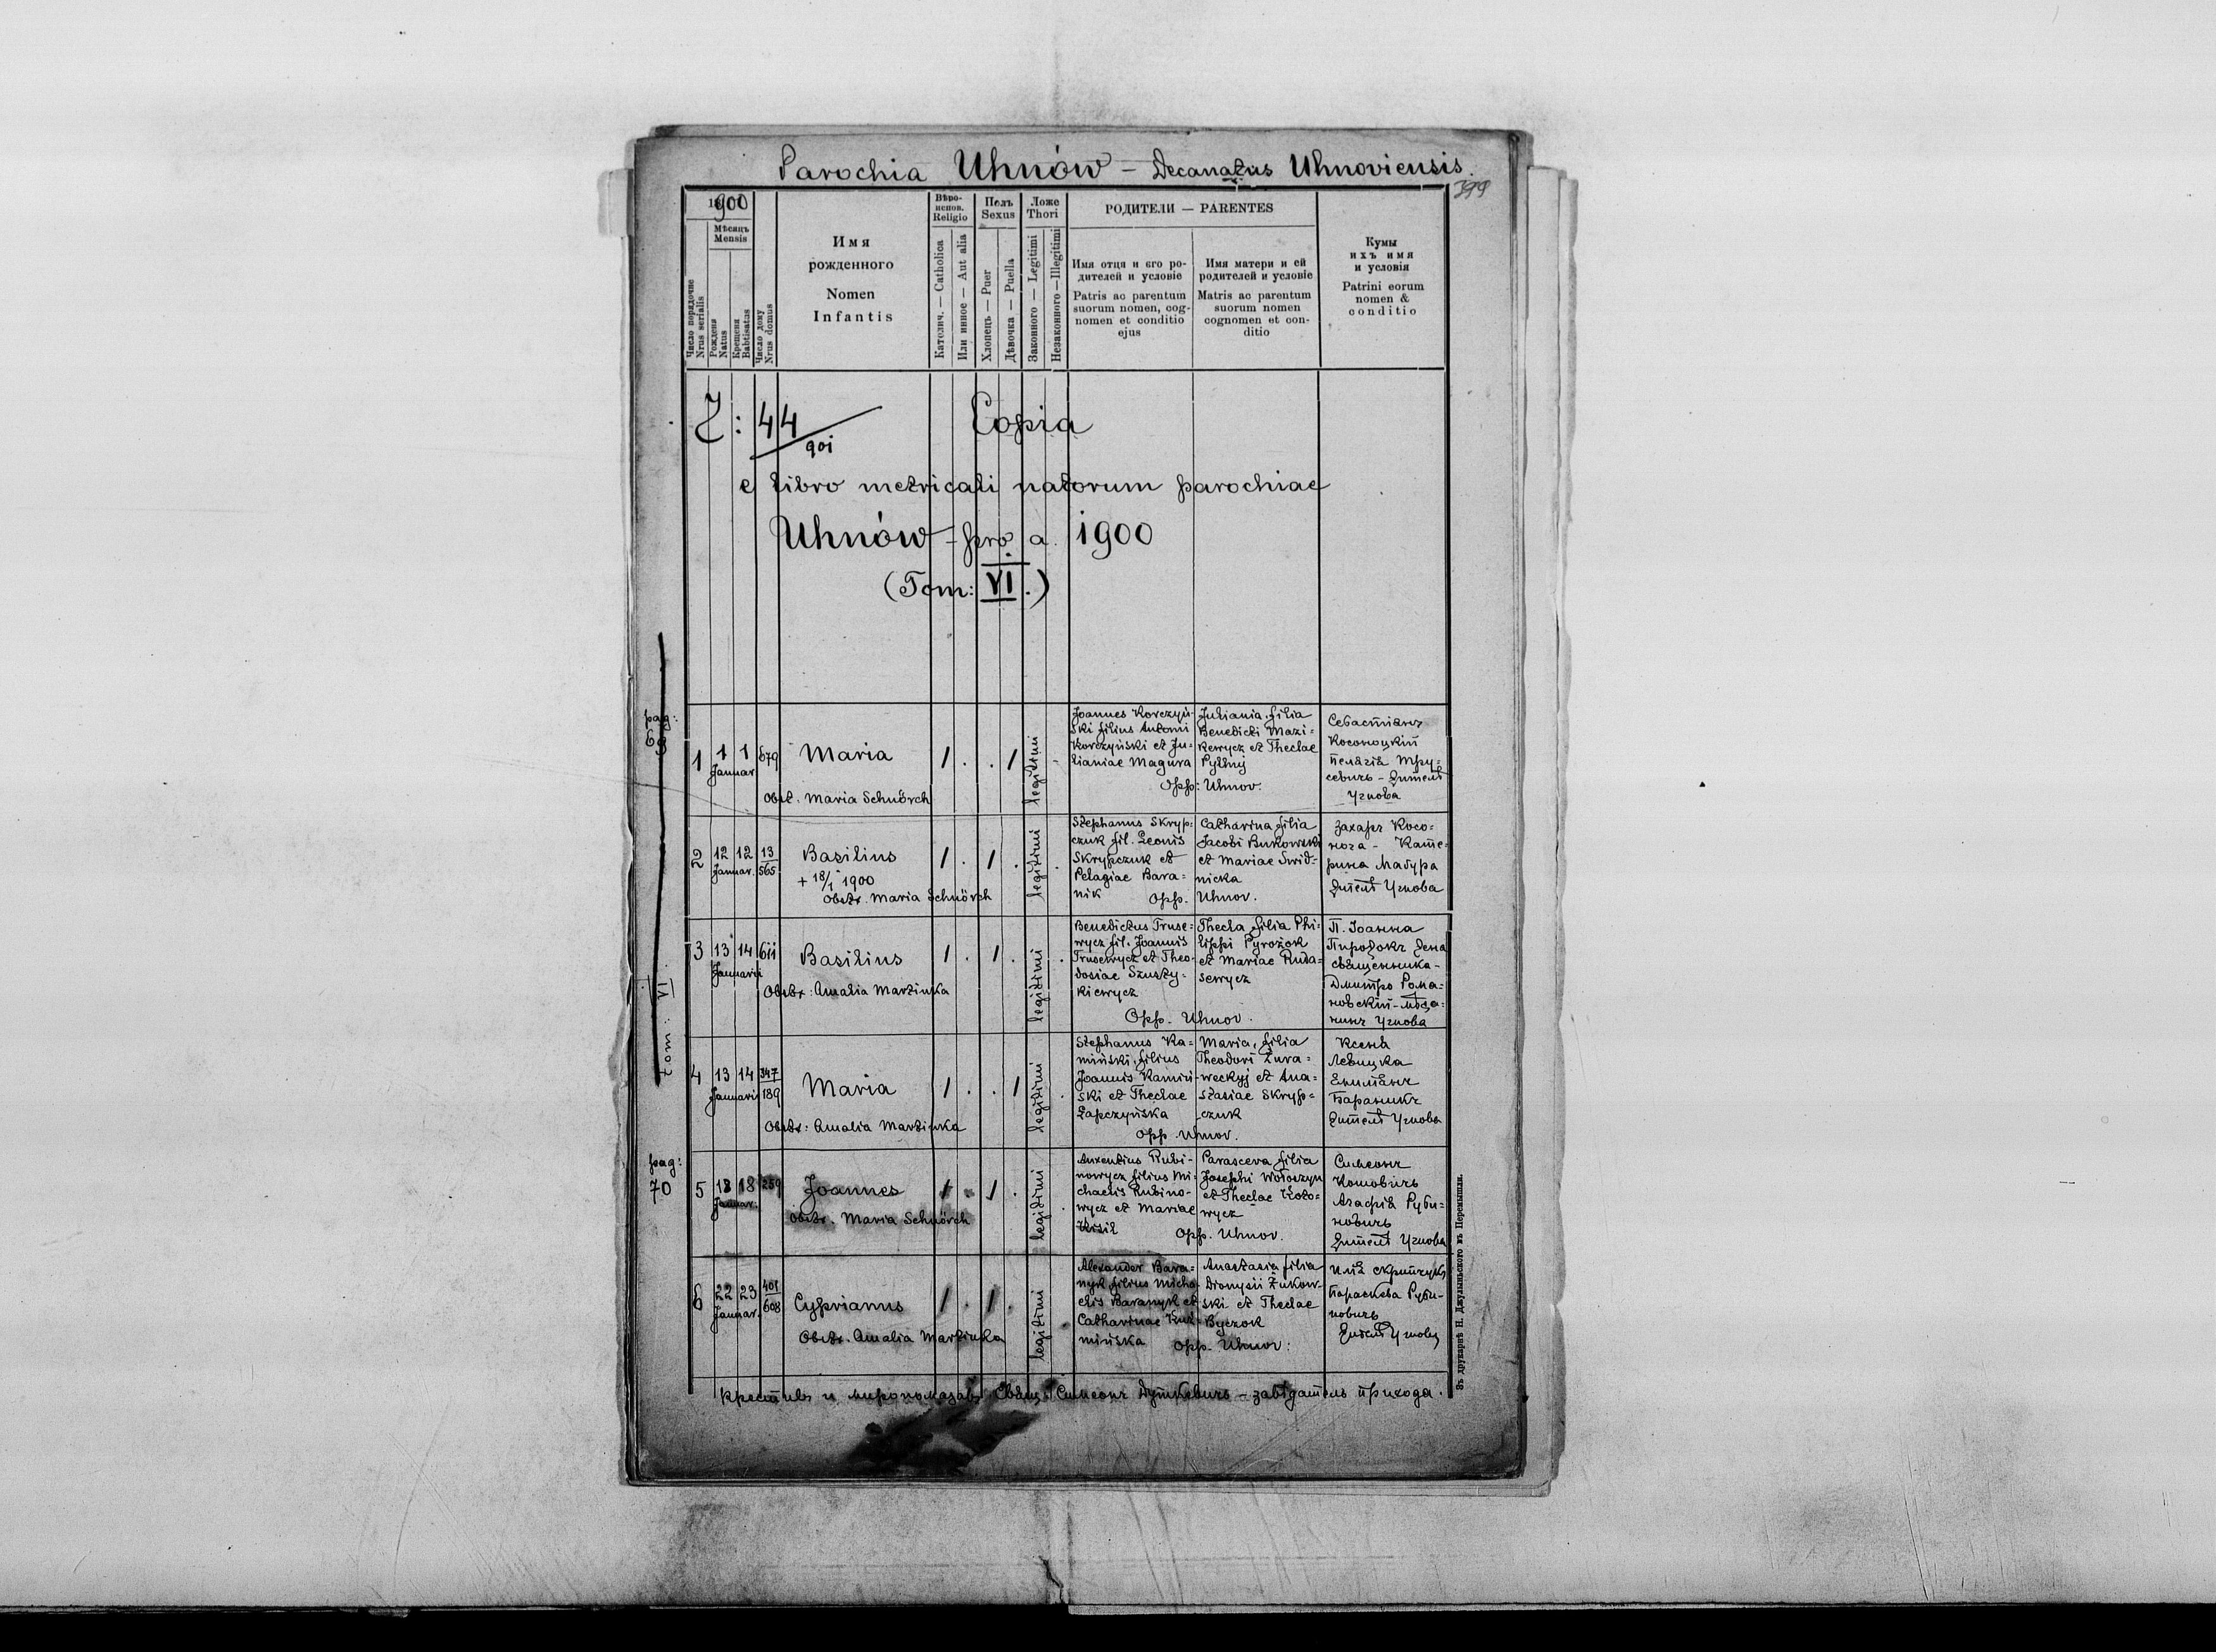 Parochia Uhnów – Decanatus Uhnoviensis.
399
1900
Мѣсяць
Mensis
Число порядочне
Nrus serialis
Рождена
Natus
Крещена
Babtisatus
Число дому
Nrus domus
Имя
рожденного
Nomen
Infantis
Вѣро-
испов.
Religio
Католич. — Catholica
Или инное — Aut alia
Полъ
Sexus
Хлопець — Puer
Дѣвочка — Puella
Ложе
Thori
Законного — Legitimi
Незаконного — Illegitimi
РОДИТЕЛИ — PARENTES
Имя отця и его ро-
дителей и условіе
Patris ac parentum
suorum nomen, cog-
nomen et conditio
ejus
Имя матери и ей
родителей и условіе
Matris ac parentum
suorum nomen
cognomen et con-
ditio
Кумы
ихъ имя
и условія
Patrini eorum
nomen &
conditio
Z: 44/901 Copia
e libro metricali natorum parochiae
Uhnów – pro a. 1900
(Tom: VI.)
pag:
69
tom. VI.
1
1 1
Januar
679
Maria
Obst. Maria Schnörch
1 . . 1
legitimi
Joannes Korczyń-
ski filius Antonii
Korczyński et Ju-
lianiae Magura
Juliania, filia
Benedicti Mazi-
kewycz et Theclae
Pyłnij
Opp: Uhnov.
Севастіянъ
Косоноцкій
Пелагія Тру-
севичъ – жителѣ
Угнова
2
12 12
Januar.
13
565
Basilius
+ 18/1 1900
Obstr. Maria Schnörch
1 . 1 .
legitimi
Stephanus Skryp-
czuk fil. Leonis
Skrypczuk et
Pelagiae Bara-
nik
Catharina filia
Jacobi Bukowski
et Mariae Swid-
nicka
Opp. Uhnov.
Захаръ Косо-
нога – Кате-
рина Мадура
жителѣ Угнова
3
13 14
Januarii
611
Basilius
Obstr: Amalia Martinka
1 . 1 .
legitimi
Benedictus Truse-
wycz fil. Joannis
Trusewycz et Theo-
dosiae Szusty-
kiewycz
Thecla filia Phi-
lippi Pyrożok
et Mariae Ruda-
sewycz
Opp. Uhnov.
П. Іоанна
Пирожокъ жена
священника –
Дмитро Рома-
новскій – мѣща-
нинъ Угнова
4
13 14
Januarii
347
189
Maria
Obstr: Amalia Martinka
1 . . 1
legitimi
Stephanus Ka-
miński, filius
Joannis Kamiń-
ski et Theclae
Łapczyńska
Maria, filia
Theodori Żura-
weckyj et Ana-
stasiae Skryp-
czuk
Opp. Uhnov.
Ксеня
Левицка
Епитанъ
Бараникъ
жителѣ Угнова
pag:
70
5
18 18
Januar.
259
Joannes
Obstr. Maria Schnörch
1 . 1 .
legitimi
Auxentius Rubi-
nowycz filius Mi-
chaelis Rubino-
wycz et Mariae
Kisił
Parasceva filia
Josephi Wołoszyn
et Theclae Koto-
wycz
Opp. Uhnov.
Симеонъ
Котовичъ
Агафія Руби-
новичъ
жителѣ Угнова
6
22 23
Januar.
401
608
Cyprianus
Obstr. Amalia Martinka
1 . 1 .
legitimi
Alexander Bara-
nyk filius Micha-
elis Baranyk et
Catharinae Kuź-
mińska
Anastasia filia
Dionysii Żukow-
ski et Theclae
Byczok
Opp. Uhnov:
Илія Скрипчукъ
Параскева Руби-
новичъ
жителѣ Угнова
Крестивъ и миропомазавъ Свящ. Симеонъ Дуткевичъ – завѣдатель прихода.
Зъ друкарнѣ Н. Джулыньского въ Перемышли.